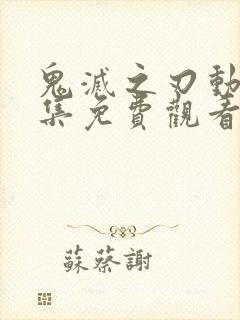 鬼滅之刃動
集免費觀看
蘇蔡謝